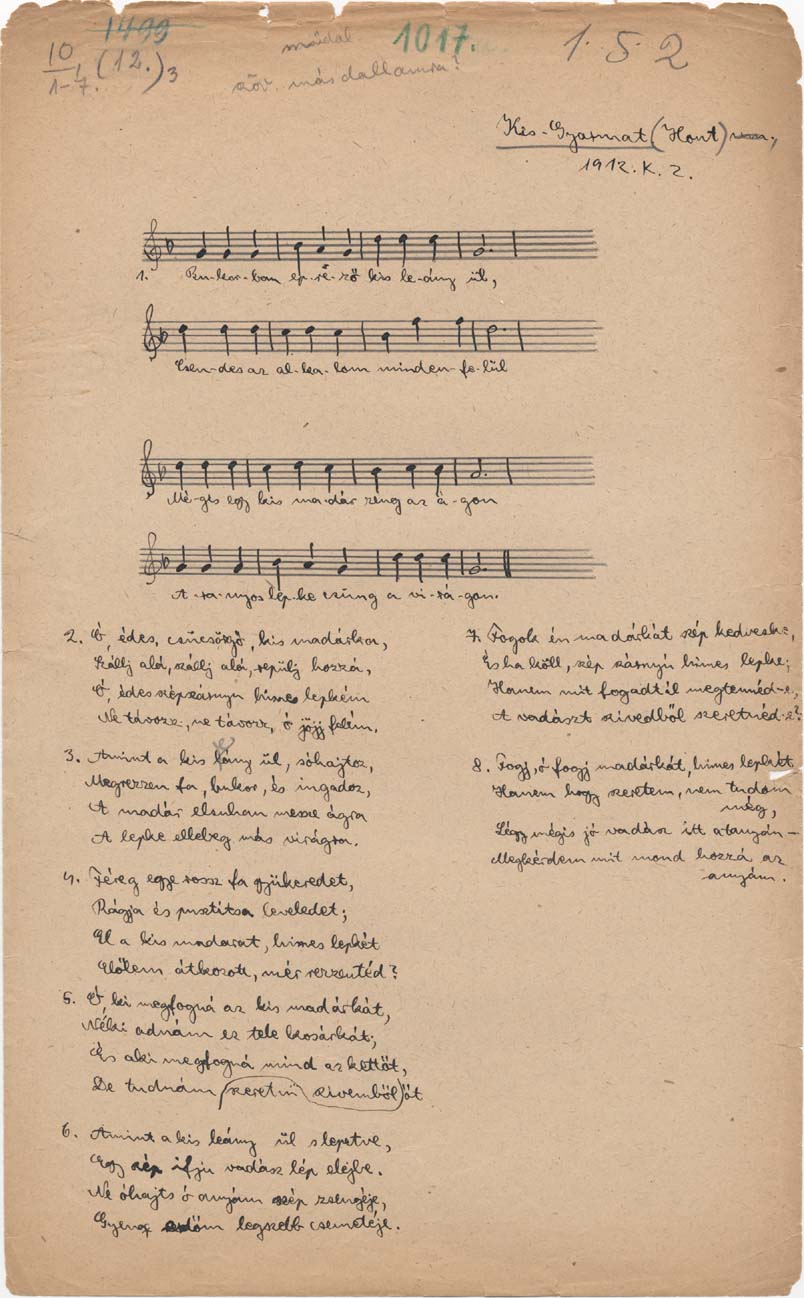 1499
10/1-7. (12.)3
műdal 1017. 152
szöv. más dallamra?
Kis-Gyarmat (Hont)
1912. K. Z.
1. Bu-kor-ban ep-ré-ző kis le-ány ül,
Csen-des az al-ka-lom minden-fe-lül
Mé-gis egy kis ma-dár zeng az á-gon
A-ra-nyos lep-ke csüng a vi-rá-gon.
2. Ó, édes, csücsörgő, kis madárka,
Szállj alá, szállj alá, repülj hozzá,
Ó, édes szépszárnyu himes lepkém
Ne távozz, ne távozz, ó jöjj felém.
3. Amint a kis lány ül, sóhajtoz,
Megrezzen fa, bukor, és ingadoz,
A madár elsuhan messe ágra
A lepke ellebeg más virágra.
4. Féreg egye rossz fa gyükeredet,
Rágja és pusztitsa leveledet;
El a kis madarat, himes lepkét
Előlem átkozott, mér rezzentéd?
5. Ó, ki megfogná az kis madárkát,
Néki adnám ez tele kosárkát;
És aki megfogná mind az kettőt,
De tudnám szeretni szivemből őt
6. Amint a kis leány ül s lepetve,
Egy szép ifju vadász lép elejbe.
Ne óhajts ó anyám szép zsengéje,
Gyenge legszebb csemetéje.
7. Fogok én madárkát szép kedveske,
És ha köll, szép szárnyú himes lepke;
Hanem mit fogadtál megtennéd-e,
A vadászt szivedből szeretnéd-e?
8. Fogj, ó fogj madárkát, himes lepkét
Hanem hogy szeretem, nem tudom
még,
Légy mégis jó vadász itt a tanyán –
Megkérdem mit mond hozzá az
anyám.